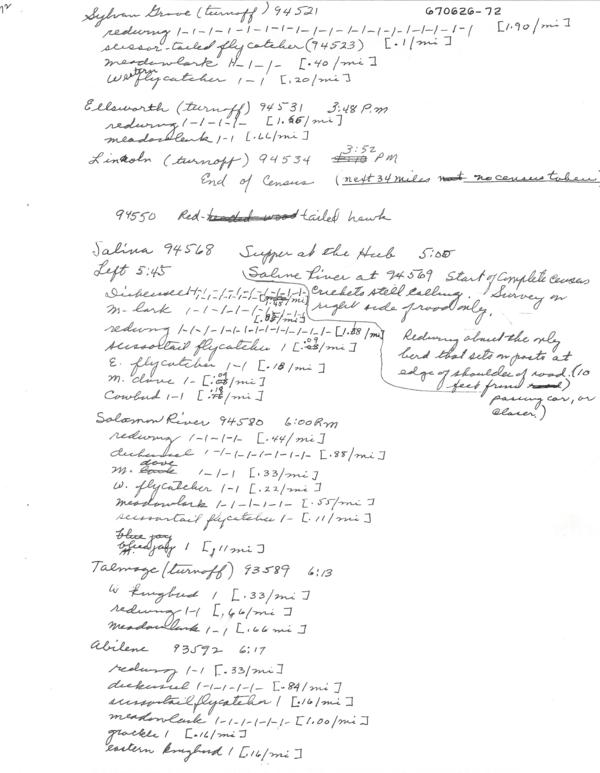 72
Sylvan Grove (turnoff) 94521 670626-72
redwing 1-1-1-1-1-1-1-1-1-1-1-1-1-1-1-1-1-1-1 [1.90/mi]
scissor-tailed flycatcher (94523) [.1/mi]
meadowlark 1-1-1- [.40/mi]
Western flycatcher 1-1 [.20/mi]
Ellsworth (turnoff) 94531 3:48 P.m
redwing 1-1-1-1-1- [1.66/mi]
meadowlark 1-1 [.66/mi]
Lincoln (turnoff) 94534 3:52 PM
End of Census (next 34 miles no census taken)
94550 Red-tailed hawk
Salina 94568 Supper at the Hub 5:00
Left 5:45 Saline River at 94569 Start of Complete Census
Dickcissel 1-1-1-1-1-1-1-1-1- Crickets still calling. Survey on
m. lark 1-1-1-1-1-1- right side of road only.
redwing 1-1-1-1-1-1-1-1-1-1-1-1- [1.08/mi]
scissortail flycatcher 1 [.09/mi] Redwing about the only
E. flycatcher 1-1 [.18/mi] bird that sits on posts at
m. dove 1- [.09/mi] edge of shoulder of road. (10
Cowbird 1-1 [.18/mi] feet from passing car, or
closer.)
Solomon River 94580 6:00 P.m
redwing 1-1-1-1- [.44/mi]
dickcissel 1-1-1-1-1-1-1-1- [.88/mi]
m. dove 1-1-1 [.33/mi]
W. flycatcher 1-1 [.22/mi]
meadowlark 1-1-1-1-1- [.55/mi]
scissortail flycatcher 1- [.11/mi]
blue jay 1 [.11 mi]
Talmage (turnoff) 93589 6:13
W kingbird 1 [.33/mi]
redwing 1-1 [.66/mi]
meadowlark 1-1 [.66 mi]
Abilene 93592 6:17
redwing 1-1 [.33/mi]
dickcissel 1-1-1-1-1- [.84/mi]
scissortail flycatcher 1 [.16/mi]
meadowlark 1-1-1-1-1-1- [1.00/mi]
grackle 1 [.16/mi]
eastern kingbird 1 [.16/mi]